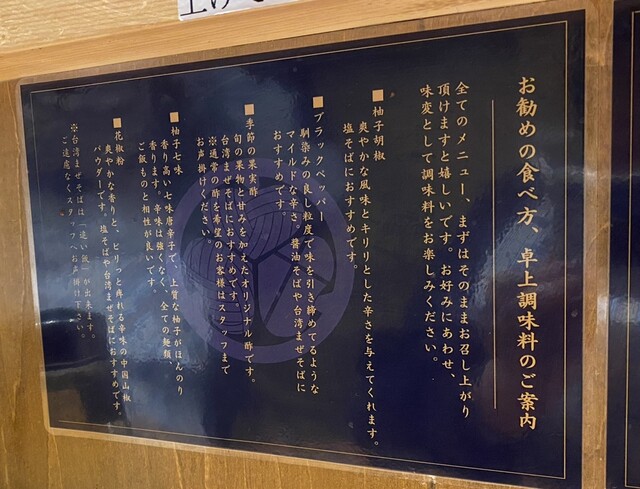 お勧めの食べ方、卓上調味料のご案内
全てのメニュー、まずはそのままお召し上がり
頂けますと嬉しいです。お好みにあわせ、
味変として調味料をお楽しみください。
■柚子胡椒
爽やかな風味とキリリとした辛さを与えてくれます。
塩そばにおすすめです。
■ブラックペッパー
馴染みの良し粒度で味を引き締めてるような
マイルドな辛さ。醬油そばや台湾まぜそばに
おすすめです。
■季節の果実酢
旬の果物と甘みを加えたオリジナル酢です。
台湾まぜそばにおすすめです。
※通常の酢を希望のお客様はスタッフまで
お声掛けください。
■柚子七味
香り高い七味唐辛子で、上質な柚子がほんのり
香ります。辛味は強くなく、全ての麺類、
ご飯ものと相性が良いです。
■花椒粉
爽やかな香りと、ピリっと痺れる辛味の中国山椒
パウダーです。塩そばや台湾まぜそばにおすすめです。
※台湾まぜそばは「追い飯」が出来ます。
ご遠慮なくスタッフへお声掛け下さい。